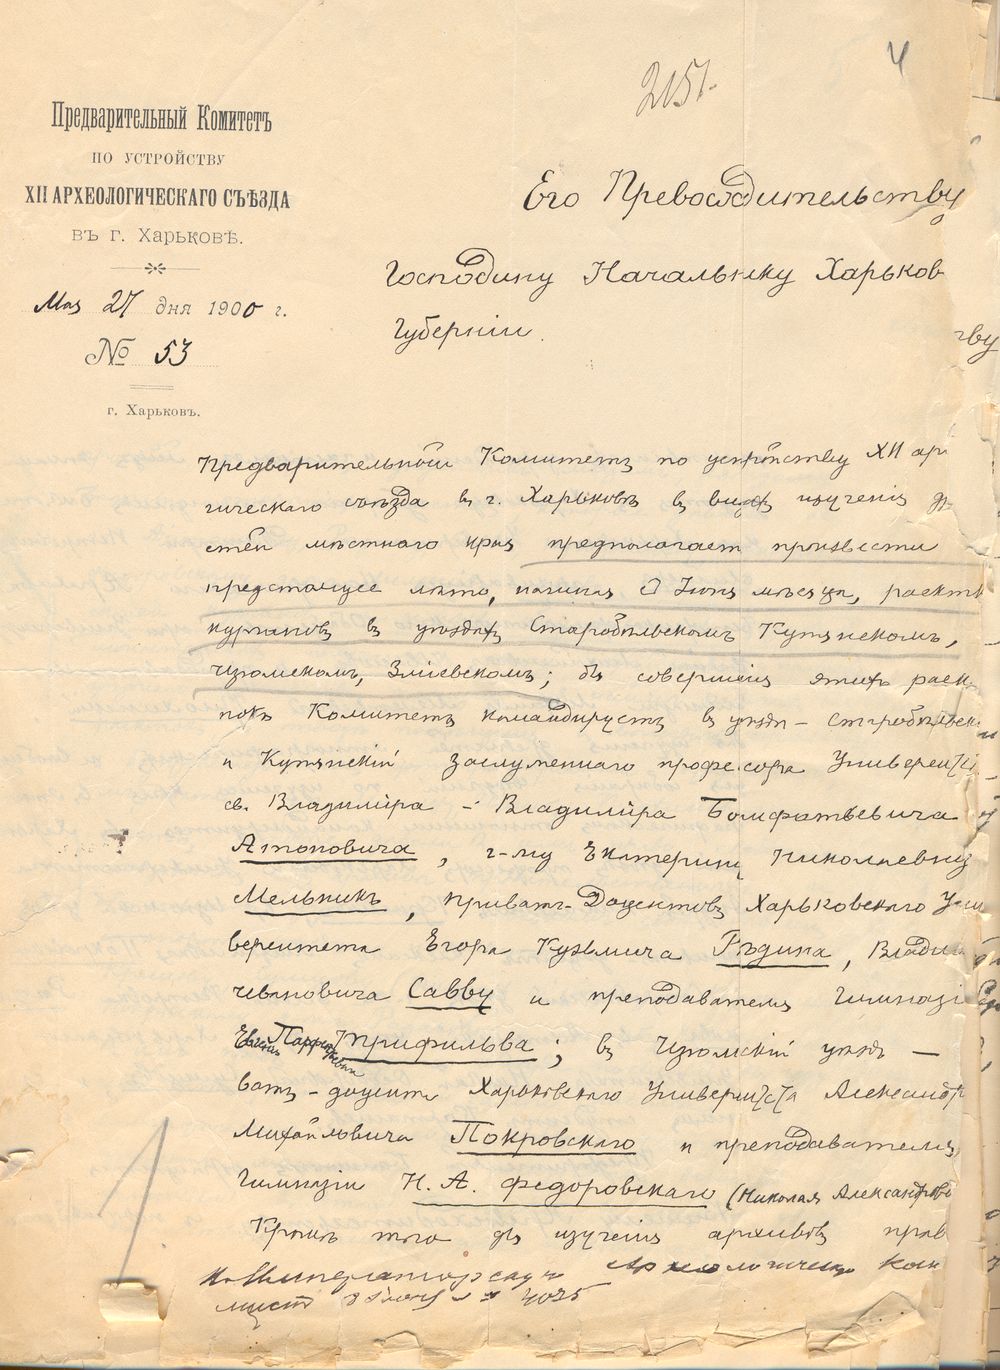 4
2151.
Предварительный Комитетъ
по устройству
XII АРХЕОЛОГИЧЕСКАГО СЪѢЗДА
въ г. Харьковѣ.
Мая 27 дня 1900 г.
№ 53
г. Харьковъ.
Его Превосходительству
Господину Начальнику Харьков
Губерніи.
тву
Предварительный Комитетъ по устройству XII ар
гическаго съѣзда въ г. Харьковѣ въ видахъ изученія др
стей мѣстнаго края предполагаетъ произвести
предстоящее лѣто, начиная съ Іюня мѣсяца, раскт
кургановъ въ уѣздахъ Старобѣльскомъ Купянскомъ,
Изюмскомъ, Зміевскомъ; для совершенія этихъ раск
покъ Комитетъ командируетъ въ уѣзды – старобѣльскі
и Купянскій заслуженнаго профессора Университ
св. Владиміра – Владиміра Бонифатьевича
Антоновича, г-жу Екатерину Николаевну
Мельникъ, приватъ-доцентовъ Харьковскаго Уни
верситета Егора Кузьмича Рѣдина, Влади
Ивановича Савву и преподавателя Гимназі
Евгенія Парфеновича Трифильева; въ Изюмскій уѣздъ —
ватъ-доцента Харьковскаго Университета Александр
Михайловича Покровскаго и преподавателя
Гимназіи Н. А. Федоровскаго (Николая Александрово
Кромѣ того для изученія архивовъ прав
Императорскую Археологическую Ком
4025